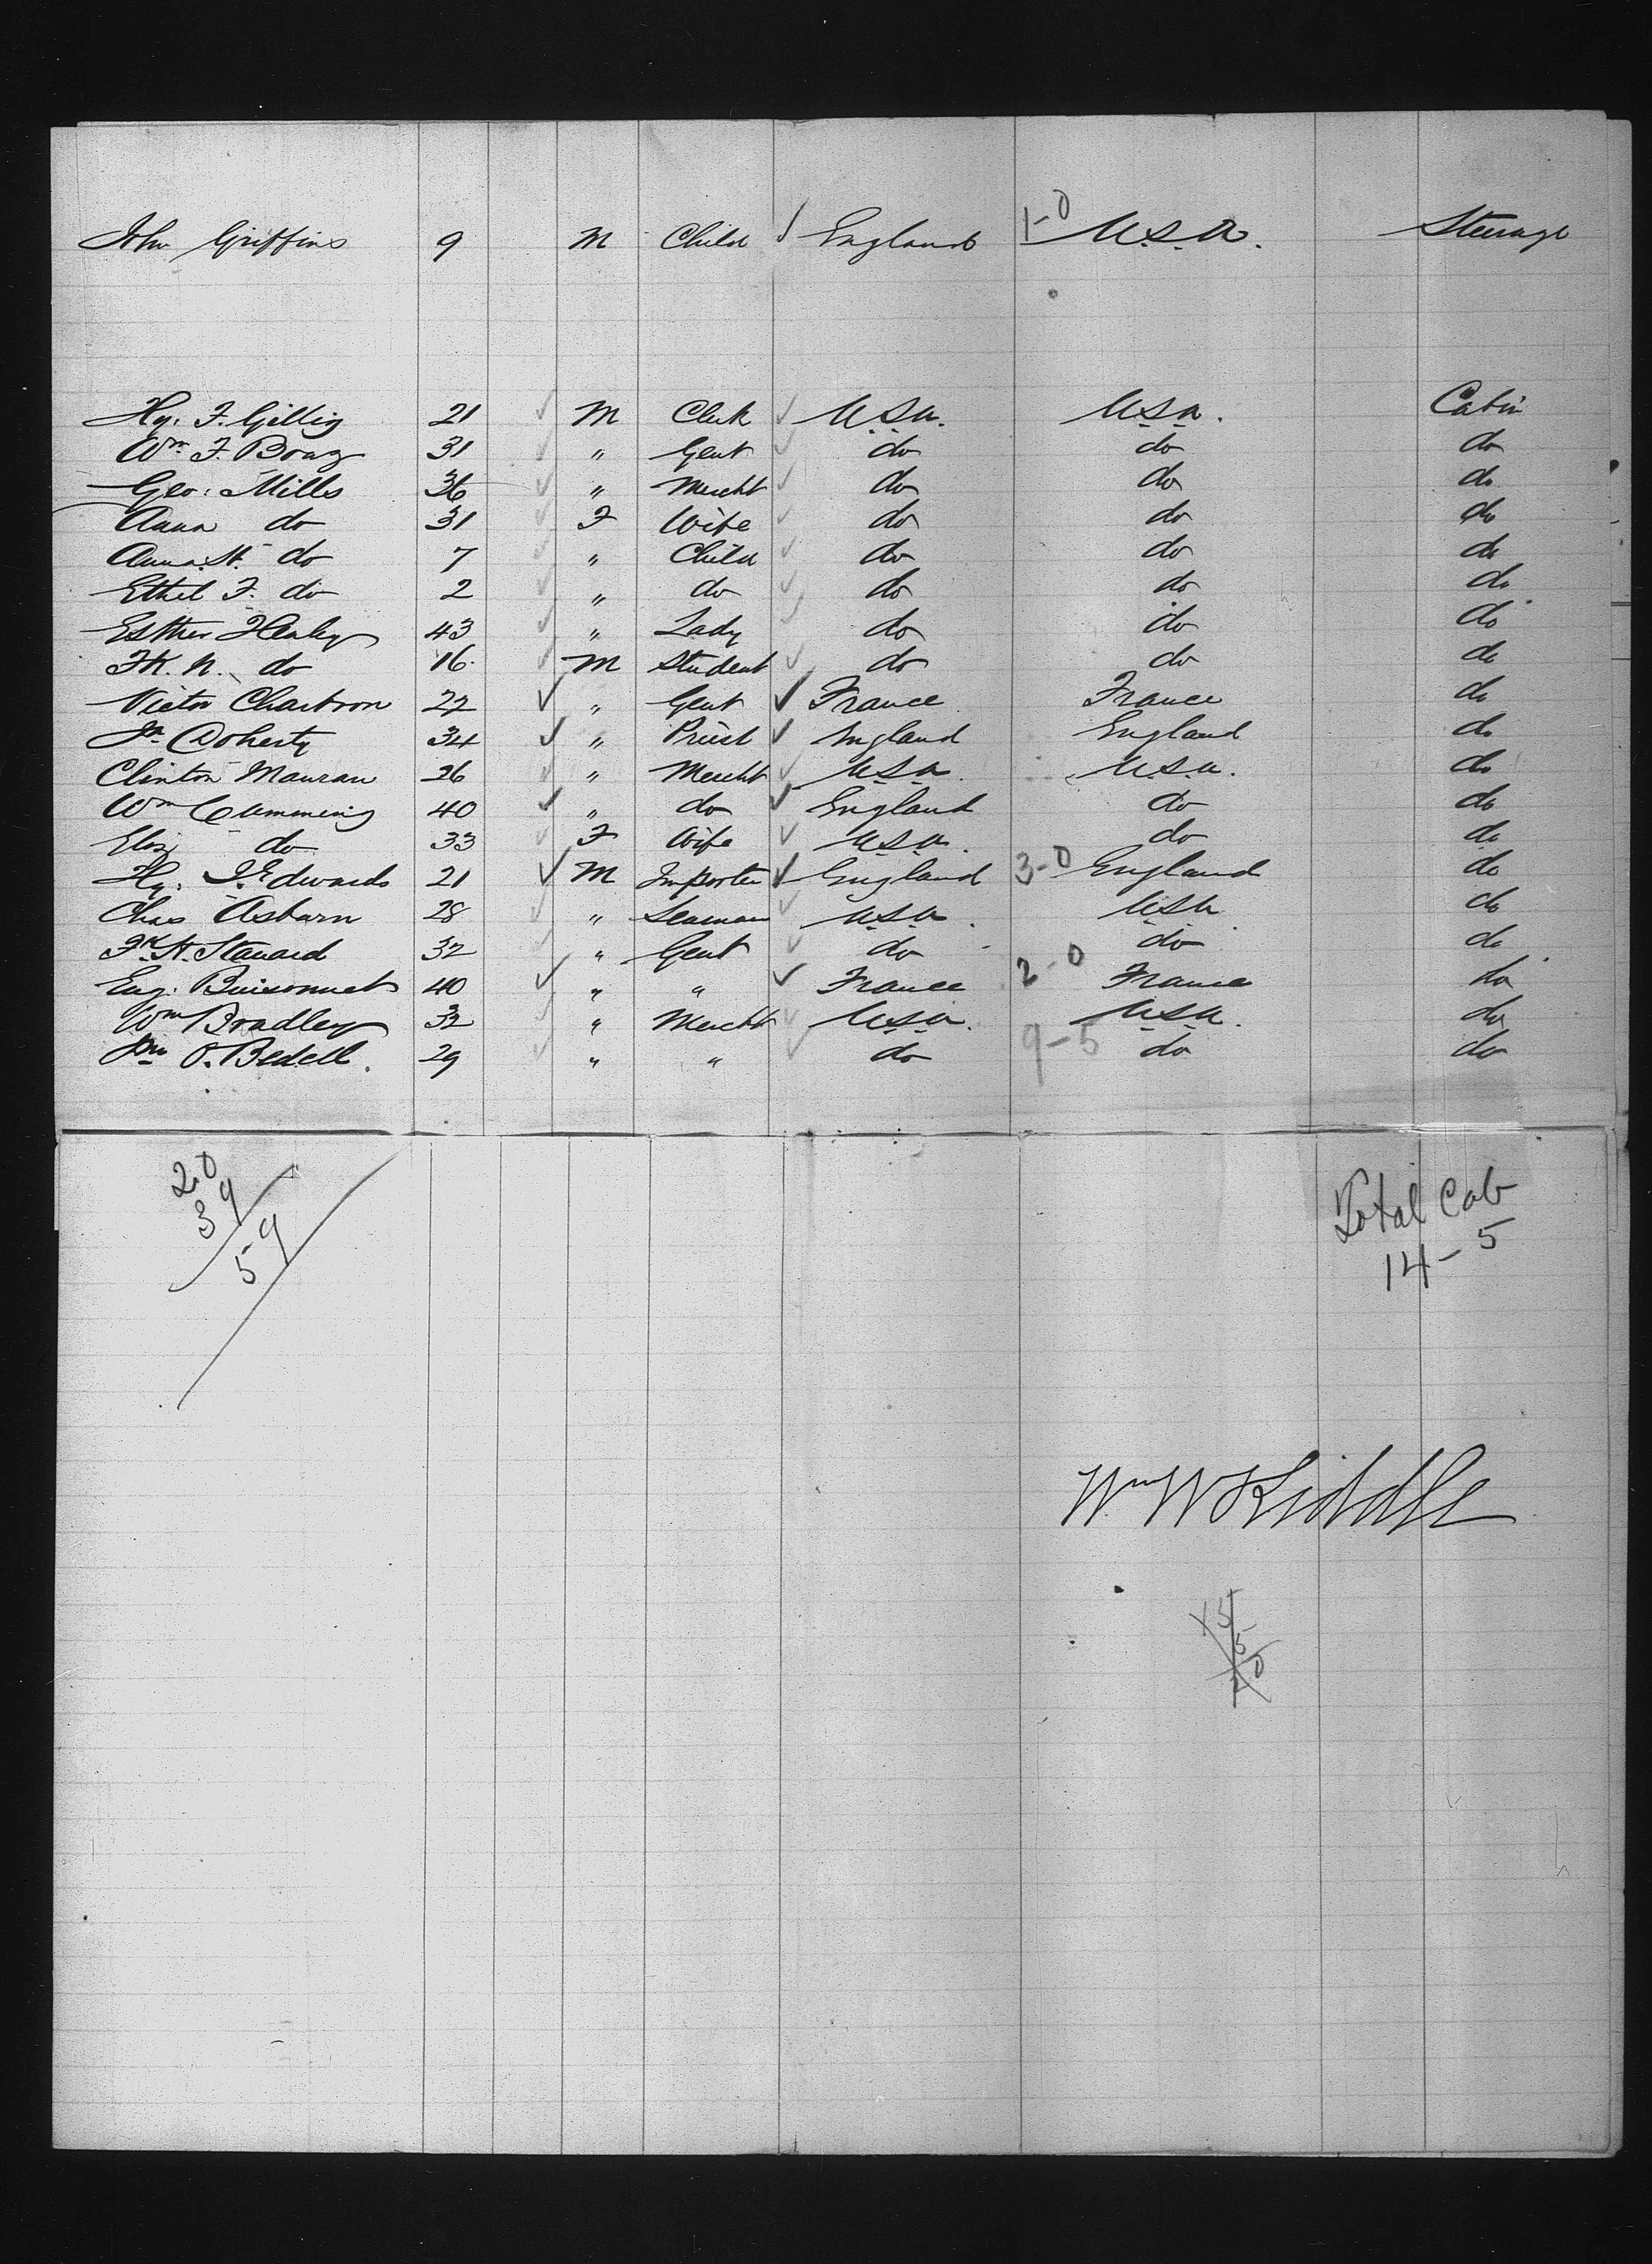 John Griffins 9 M Child √ England 1-0 U.S.A. Steerage
Hy. F. Gillig 21 ✓ M Clerk ✓ U.S.A. U.S.A. Cabin
Wm F. Boag 31 ✓ " Gent ✓ do do do
Geo: Mills 36 ✓ " Mercht ✓ do do do
Anna do 31 ✓ F Wife ✓ do do do
Anna St. do 7 ✓ " Child ✓ do do do
Ethel F. do 2 ✓ " do ✓ do do do
Esther Healey 43 ✓ " Lady ✓ do do do
Fk. N. do 16 ✓ M Student ✓ do do do
Victor Chartron 22 ✓ " Gent ✓ France France do
Doherty 34 ✓ " Priest ✓ England England do
Clinton Mauran 26 ✓ " Mercht ✓ U.S.A. U.S.A. do
Wm Cumming 40 ✓ " do ✓ England do do
Eliz do 33 ✓ F Wife ✓ U.S.A. do do
Hy. J. Edwards 21 ✓ M Importer ✓ England 3-0 England do
Chas Asbarn 28 ✓ " Seaman ✓ U.S.A. U.S.A. do
Fk. H. Stanard 32 ✓ " Gent ✓ do do do
Eug. Buisonnet 40 ✓ " " ✓ France 2-0 France do
Wm Bradley 32 ✓ " Mercht ✓ U.S.A. U.S.A. do
Jno O. Bedell. 29 ✓ " " ✓ do 9-5 do do
20
39
59
Total Cab
14-5
Wm W Kiddle
15
5
20